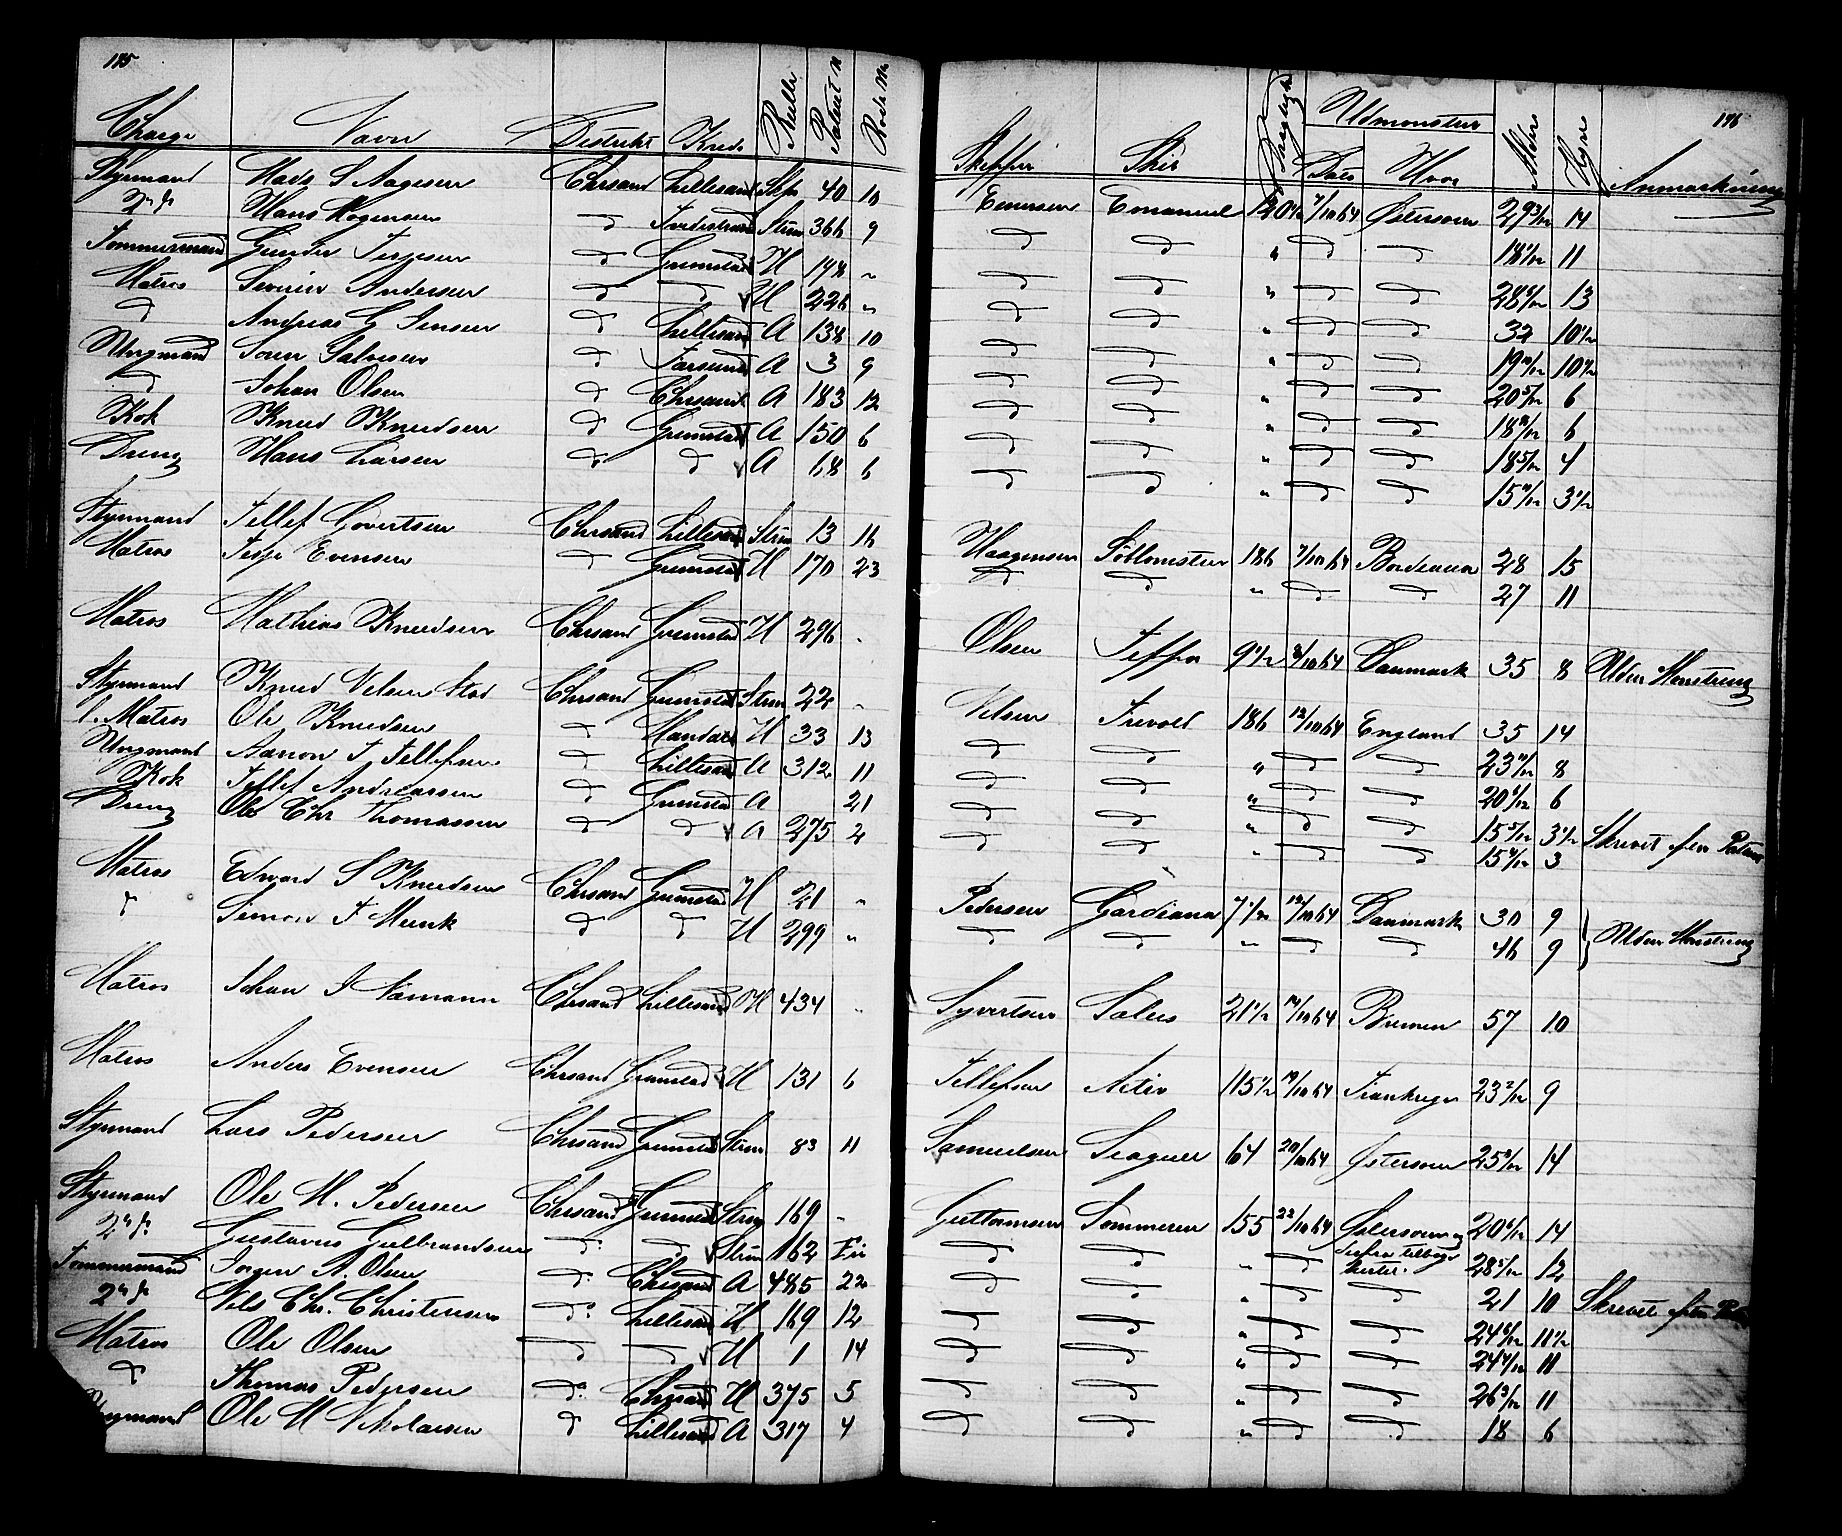 175
Charge Navn Distrikt Kreds Rulle Patent N Rode No
Styrmand Mads S Aagesen Chrsand Lillesand Stm 40 10
2den do Hans Mogensen d Stm 366 9
Tømmermand Gunder Terjesen d Grimstad U 148 "
Matros Severin Andersen d d U 226 "
d Andreas G Jensen d Lillesand A 138 10
Ungmand Søren Salvesen d Farsund A 3 9
d Johan Olsen d Chrsand A 183 12
Kok Knud Knudsen d Grimstad A 150 6
Dreng Hans Larsen d d A 68 6
Styrmand Tellef Govertsen Chrsand Lillesand Strm 13 16
Matros Jesper Evensen d Grimstad U 170 23
Matros Mathias Knudsen Chrsand Grimstad U 296 "
Styrmand Knud Nelsen Stad Chrsand Grimstad Strm 22 "
l. Matros Ole Knudsen d Mandal U 33 13
Ungmand Aanon T Tellefsen d Lillesand A 312 11
Kok Tellef Andreassen d Grimstad A 21
Dreng Ole Chr Thomassen d d A 275 2
Matros Edward S Knudsen Chrsand Grimstad U 21 "
d Simon T Munk d d U 299 "
Matros Johan I Næmann Chrsand Lillesand U 434 "
Matros Anders Evensen Chrsand Grimstad U 131 6
Styrmand Lars Pedersen Chrsand Grimstad Strm 83 11
Styrmand Ole M. Pedersen Chrsand Grimstad Strm 169 "
2den do Gustavus Gulbrandsen do d Strm 162 Fri
Tømmermand Jørgen A. Olsen do Chrsand A 485 22
2den do Nils Chr. Christensen do Lillesand U 169 12
Matros Ole Olsen d d U 1 14
d Thomas Pedersen do Chrsand U 375 5
Ungmand Ole M Nikolaisen d Lillesand A 317 4
176
Skipper Skib Drægtighed Udmønstret Alder Hyre Anmærkning
Dato Hvor
Evensen Emanuel 120 1/2 7/10 64 Østersøen 29 3/12 14
d d " d d 18 1/12 11
d d " d d 28 6/12 13
d d " d d 32 10 1/2
d d " d d 19 10/12 10 1/2
d d " d d 20 5/12 6
d d " d d 18 11/12 6
d d " d d 18 5/12 4
d d " d d 15 11/12 3 1/2
Haagensen Søblomsten 186 7/10 64 Bordeaux 28 15
d d " d d 27 11
Olsen Jeppa 9 1/2 8/10 64 Danmark 35 8 Uden Mønstring
Nelsen Frevold 186 12/10 64 England 35 14
d d " d d 23 11/12 8
d d " d d 20 1/12 6
d d " d d 15 5/12 3 1/2 Skrevet efter Patent
d d " d d 15 4/12 3
Pedersen Gardiana 7 1/2 12/10 64 Danmark 30 9
d d " d d 46 9 Uden Mønstring
Syvertsen Sales 21 1/2 14/10 64 Bremen 57 10
Tellefsen Activ 115 1/2 19/10 64 Frankrige 23 2/12 9
Samuelsen Seagull 64 20/10 64 Østersøen 25 8/12 14
Guttormsen Sommeren 155 22/10 64 Østersøen og 20 6/12 14
d d " d derfra tilbage 28 5/12 12
d d " 21 10 Skrevet efter Pat
d d " d d 24 6/12 11 1/2
d d " d d 24 4/12 11
d d " d d 26 3/12 11
d d " d d 18 6